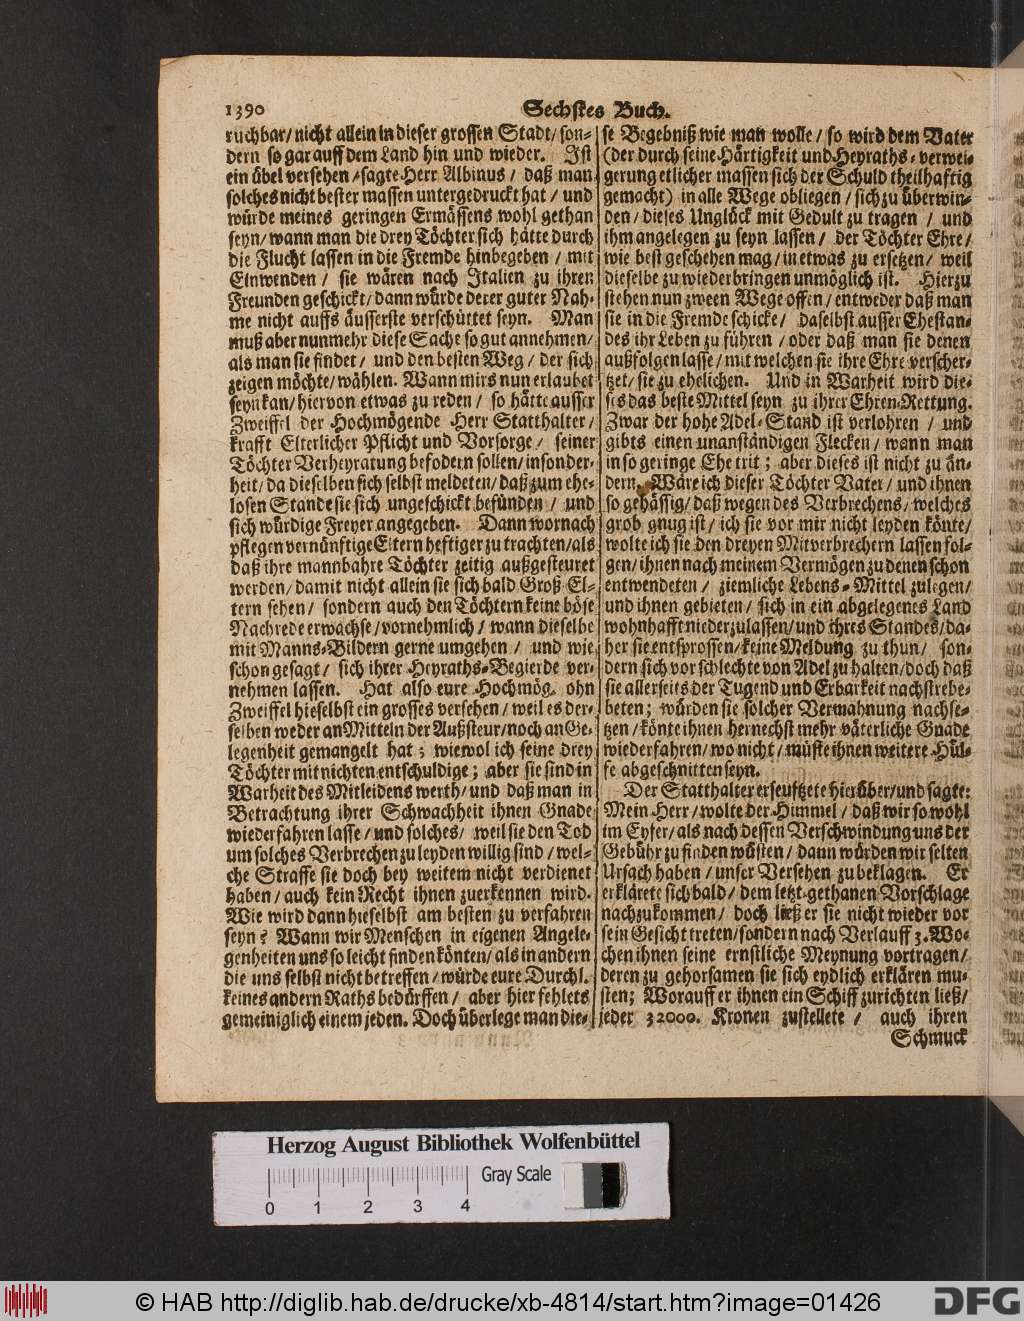 1390
Sechstes Buch.
ruchbar/ nicht allein in dieser grossen Stadt/ son-
dern so gar auff dem Land hin und wieder. Ist
ein übel versehen/ sagte Herr Albinus/ daß man
solches nicht bester massen untergedruckt hat/ und
würde meines geringen Ermässens wohl gethan
seyn/ wann man die drey Töchter sich hätte durch
die Flucht lassen in die Fremde hinbegeben/ mit
Einwenden/ sie wären nach Italien zu ihren
Freunden geschickt/ dann würde derer guter Nah-
me nicht auffs äusserste verschüttet seyn. Man
muß aber nunmehr diese Sache so gut annehmen/
als man sie findet/ und den besten Weg/ der sich
zeigen möchte/ wählen. Wann mirs nun erlaubet
seyn kan/ hiervon etwas zu reden/ so hätte ausser
Zweiffel der Hochmögende Herr Statthalter/
krafft Elterlicher Pflicht und Vorsorge/ seiner
Töchter Verheyratung befodern sollen/ insonder-
heit/ da dieselben sich selbst meldeten/ daß zum ehe-
losen Stande sie sich ungeschickt befünden/ und
sich würdige Freyer angegeben. Dann wornach
pflegen vernünftige Eltern heftiger zu trachten/ als
daß ihre mannbahre Töchter zeitig außgesteuret
werden/ damit nicht allein sie sich bald Groß-El-
tern sehen/ sondern auch den Töchtern keine böse
Nachrede erwachse/ vornehmlich/ wann dieselbe
mit Manns-Bildern gerne umgehen/ und wie
schon gesagt/ sich ihrer Heyraths-Begierde ver-
nehmen lassen. Hat also eure Hochmög. ohn
Zweiffel hieselbst ein grosses versehen/ weil es der-
selben weder an Mitteln der Außsteur/ noch an Ge-
legenheit gemangelt hat; wiewol ich seine drey
Töchter mit nichten entschuldige; aber sie sind in
Warheit des Mitleidens werth/ und daß man in
Betrachtung ihrer Schwachheit ihnen Gnade
wiederfahren lasse/ und solches/ weil sie den Tod
um solches Verbrechen zu leyden willig sind/ wel-
che Straffe sie doch bey weitem nicht verdienet
haben/ auch kein Recht ihnen zuerkennen wird.
Wie wird dann hieselbst am besten zu verfahren
seyn? Wann wir Menschen in eigenen Angele-
genheiten uns so leicht finden könten/ als in andern
die uns selbst nicht betreffen/ würde eure Durchl.
keines andern Raths bedürffen/ aber hier fehlets
gemeiniglich einem jeden. Doch überlege man die-
se Begebniß wie man wolle/ so wird dem Vater
(der durch seine Härtigkeit und Heyraths-verwei-
gerung etlicher massen sich der Schuld theilhaftig
gemacht) in alle Wege obliegen/ sich zu überwin-
den/ dieses Unglück mit Gedult zu tragen/ und
ihm angelegen zu seyn lassen/ der Töchter Ehre/
wie best geschehen mag/ in etwas zu ersetzen/ weil
dieselbe zu wiederbringen unmöglich ist. Hierzu
stehen nun zween Wege offen/ entweder daß man
sie in die Fremde schicke/ daselbst ausser Ehestan-
des ihr Leben zu führen/ oder daß man sie denen
außfolgen lasse/ mit welchen sie ihre Ehre verscher-
tzet/ sie zu ehelichen. Und in Warheit wird die-
ses das beste Mittel seyn zu ihrer Ehren-Rettung.
Zwar der hohe Adel-Stand ist verlohren/ und
gibts einen unanständigen Flecken/ wann man
in so geringe Ehe trit; aber dieses ist nicht zu än-
dern. Wäre ich dieser Töchter Vater/ und ihnen
so gehässig/ daß wegen des Verbrechens/ welches
grob gnug ist/ ich sie vor mir nicht leyden könte/
wolte ich sie den dreyen Mitverbrechern lassen fol-
gen/ ihnen nach meinem Vermögen zu denen schon
entwendeten/ ziemliche Lebens-Mittel zulegen/
und ihnen gebieten/ sich in ein abgelegenes Land
wohnhafft niederzulassen/ und ihres Standes/ da-
her sie entsprossen/ keine Meldung zu thun/ son-
dern sich vor schlechte von Adel zu halten/ doch daß
sie allerseits der Tugend und Erbarkeit nachstrebe-
beten; würden sie solcher Vermahnung nachse-
tzen/ könte ihnen hernechst mehr väterliche Gnade
wiederfahren/ wo nicht/ müste ihnen weitere Hül-
fe abgeschnitten seyn.
Der Statthalter erseuftzete hierüber/ und sagte:
Mein Herr/ wolte der Himmel/ daß wir so wohl
im Eyfer/ als nach dessen Verschwindung uns der
Gebühr zu finden wüsten/ dann würden wir selten
Ursach haben/ unser Versehen zu beklagen. Er
erklärete sich bald/ dem letzt-gethanen Vorschlage
nachzukommen/ doch ließ er sie nicht wieder vor
sein Gesicht treten/ sondern nach Verlauff 3. Wo-
chen ihnen seine ernstliche Meynung vortragen/
deren zu gehorsamen sie sich eydlich erklären mu-
sten; Worauff er ihnen ein Schiff zurichten ließ/
jeder 32000. Kronen zustellete/ auch ihren
Schmuck
Herzog August Bibliothek Wolfenbüttel
Gray Scale
0 1 2 3 4
© HAB http://diglib.hab.de/drucke/xb-4814/start.htm?image=01426
DFG